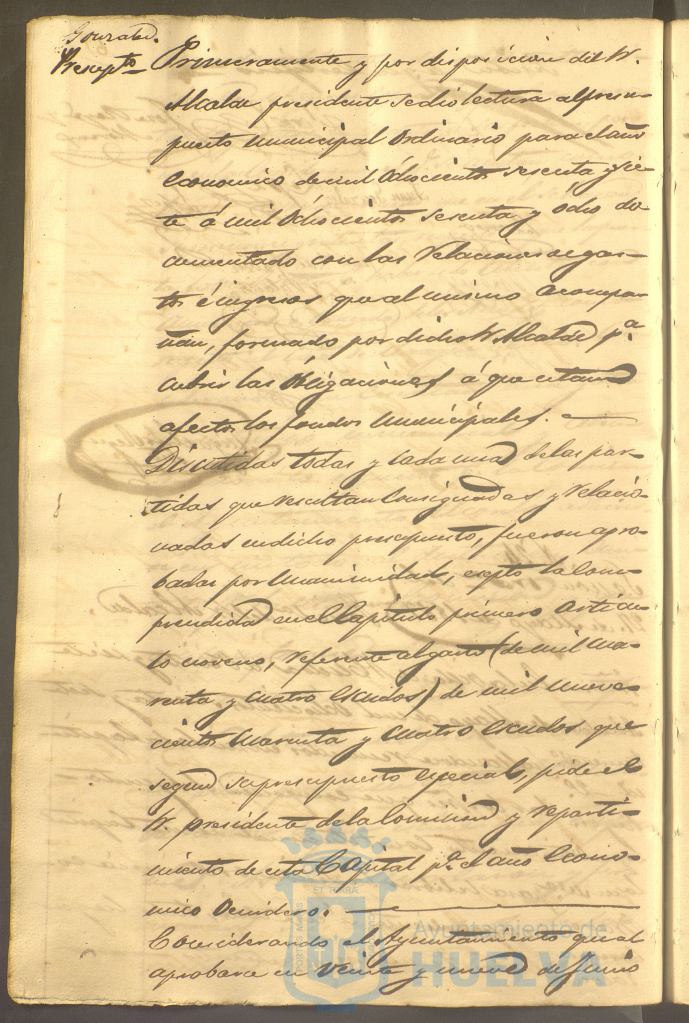 Gonzalez.
Presupto
Primeramente y por disposicion del Sr.
Alcalde presidente se dio lectura al presu-
puesto Municipal Ordinario para el año
Economico de mil Ochocientos sesenta y sie-
te á mil Ochocientos sesenta y ocho do-
cumentado con las Relaciones de gas-
tos é ingresos que al mismo acompa-
ñan, formado por dicho Sr. Alcalde pa.
cubrir las Obligaciones á que estan
afectos los fondos Municipales.
Discutidas todas y cada una de las par-
tidas que resultan Consignadas y relacio-
nadas en dicho presupuesto, fueron apro-
badas por Unanimidad, esepto la Com-
prendida en el Capitulo primero Articu-
lo noveno, referente al gasto (de mil
y cuatro Escudos) de mil nueve-
cientos y cuatro Escudos que
segun su presupuesto especial, pide el
Sr. presidente de la Comision y reparti-
miento de esta Capital pa. el año Econo-
mico Venidero.
Considerando el Ayuntamiento que al
aprobarse en Veinte y nueve de Junio
Ayuntamiento de
HUELVA